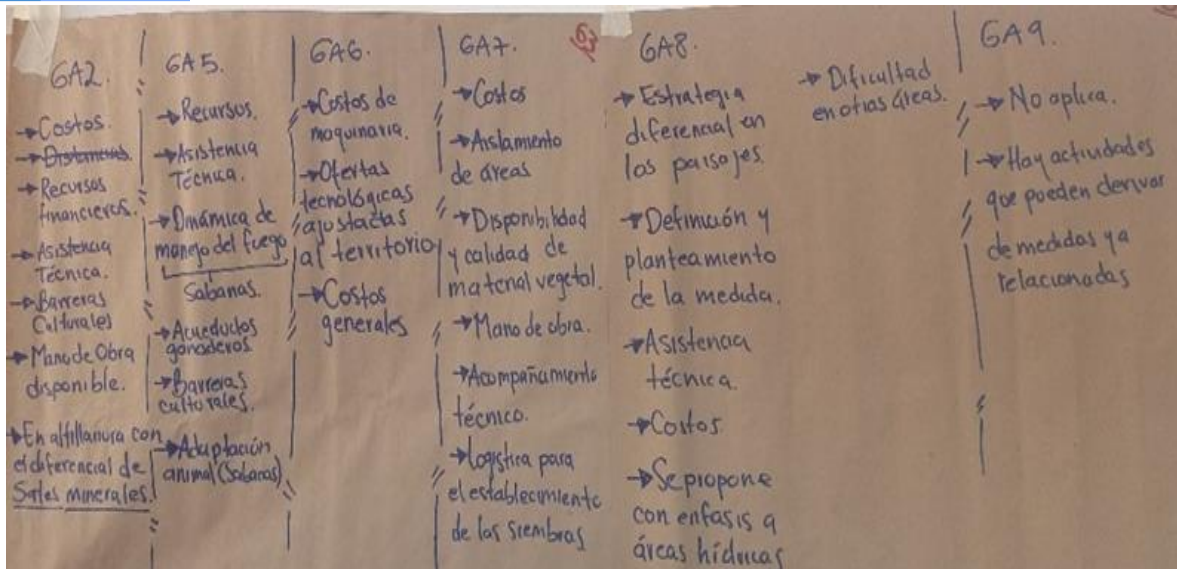 GA2.
→Costos.
→Distancias
→Recursos
financieros.
→Asistencia
Técnica.
→Barreras
Culturales
→Mano de Obra
disponible.
→En altillanura con
el diferencial de
Sales minerales.
GA5.
→Recursos.
→Asistencia
Técnica.
→Dinámica de
manejo del fuego
Sabanas.
→Acueductos
ganaderos
→Barreras
culturales.
→Adaptación
animal (Sabanas)
GA6.
→Costos de
maquinaria.
→Ofertas
tecnológicas
ajustadas
al territorio
→Costos
generales
GA7.
→Costos
→Aislamiento
de áreas
→Disponibilidad
y calidad de
material vegetal.
→Mano de obra.
→Acompañamiento
técnico.
→Logística para
el establecimiento
de las siembras
GA8.
→Estrategia
diferencial en
los paisajes.
→Definición y
planteamiento
de la medida.
→Asistencia
técnica.
→Costos
→Se propone
con enfasis a
áreas hídricas
→Dificultad
en otras áreas.
GA9.
→No aplica.
→Hay actividades
que pueden derivar
de medidas ya
relacionadas